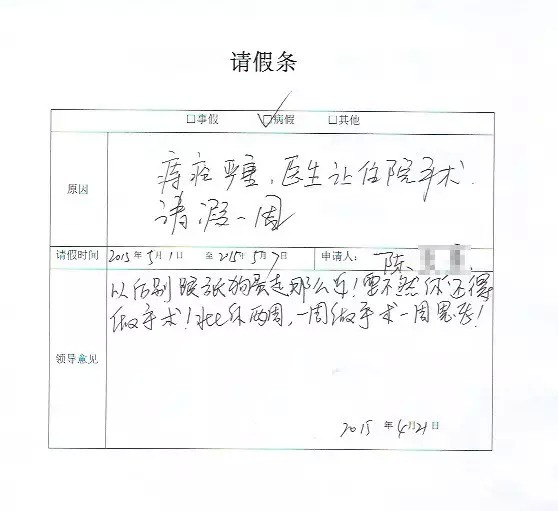 请假条
□事假 ☑病假 □其他
原因
痔疮严重，医生让住院手术.
请假一周
请假时间 2015年5月1日 至 2015年5月7日 申请人： 陈
以后别跟疯狗最走那么
！要不然你还得
做手术！批你两周，一周做手术一周
！
领导意见
2015年4月21日